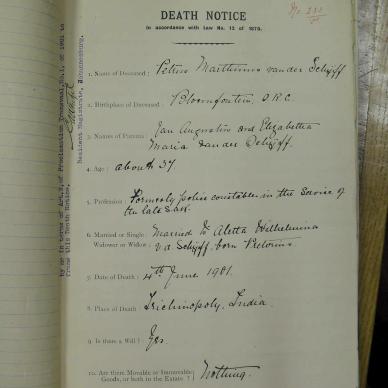 No. 232
DEATH NOTICE
In accordance with Law No. 12 of 1870.
1. Name of Deceased : Petrus Marthinus van der Schyff
2. Birthplace of Deceased : Bloemfontein, O.R.C.
3. Names of Parents : Jan Augustin and Elizabetha
Maria van der Schyff.
4. Age : about 37.
5. Profession : Formerly police constable in the Service of
the late
6. Married or Single : Married to Aletta Wilhelmina
Widower or Widow : v.d. Schyff born Pretorius
7. Date of Death : 4th June 1901.
8. Place of Death : Trichinopoly, India.
9. Is there a Will ? Yes.
10. Are there Movable or Immovable
Goods, or both in the Estate ? Nothing.
in terms of Art. of Proclamation (Transvaal) No. 1, of 1901 to
frame this Death Notice.
Resident Magistrate, Johannesburg.